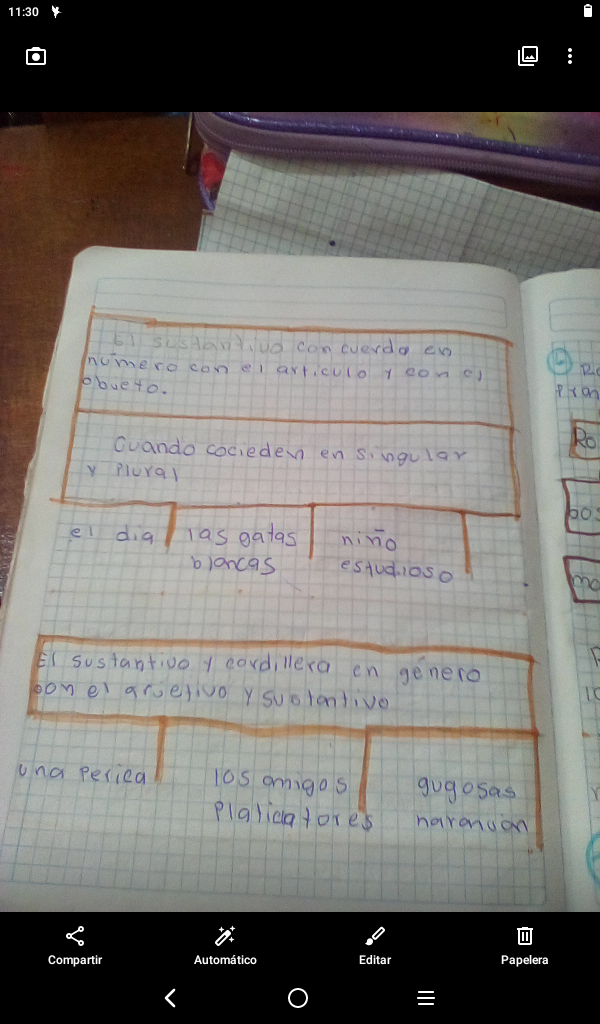 11:30
El sustantivo concuerda en
número con el articulo y con el
obueto.
Cuando cocieden en singular
y Plural
el dia
las gatas
blancas
niño
estudioso
El sustantivo y cordillera en género
con el arvetivo y sustantivo
una Perica
los amigos
Platicatores
gugosas
naranuan
Ro
Pron
Ro
bos
mo
Compartir
Automático
Editar
Papelera